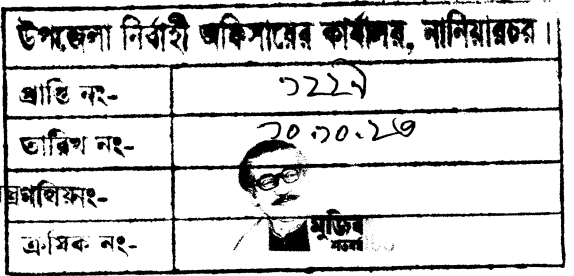 উপজেলা নির্বাহী অফিসারের কার্যালয়, নানিয়ারচর।
প্রাপ্তি নং- ১২২৭
তারিখ নং- ১০.১০.২৩
নং-
ক্রমিক নং-
মুজিব
শতবর্ষ